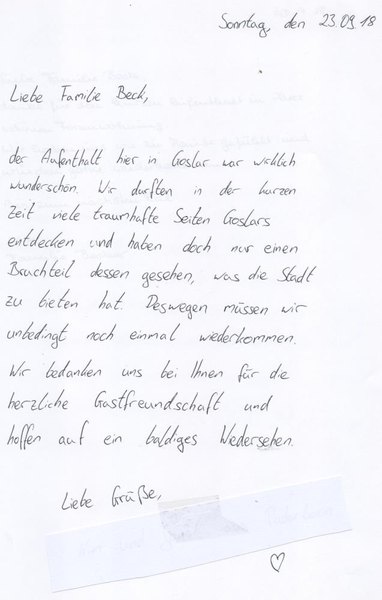 Sonntag, den 23.09.18
Liebe Familie Beck,
der Aufenthalt hier in Goslar war wirklich
wunderschön. Wir durften in der kurzen
Zeit viele traumhafte Seiten Goslars
entdecken und haben doch nur einen
Bruchteil dessen gesehen, was die Stadt
zu bieten hat. Deswegen müssen wir
unbedingt noch einmal wiederkommen.
Wir bedanken uns bei Ihnen für die
herzliche Gastfreundschaft und
hoffen auf ein baldiges Wiedersehen.
Liebe Grüße,